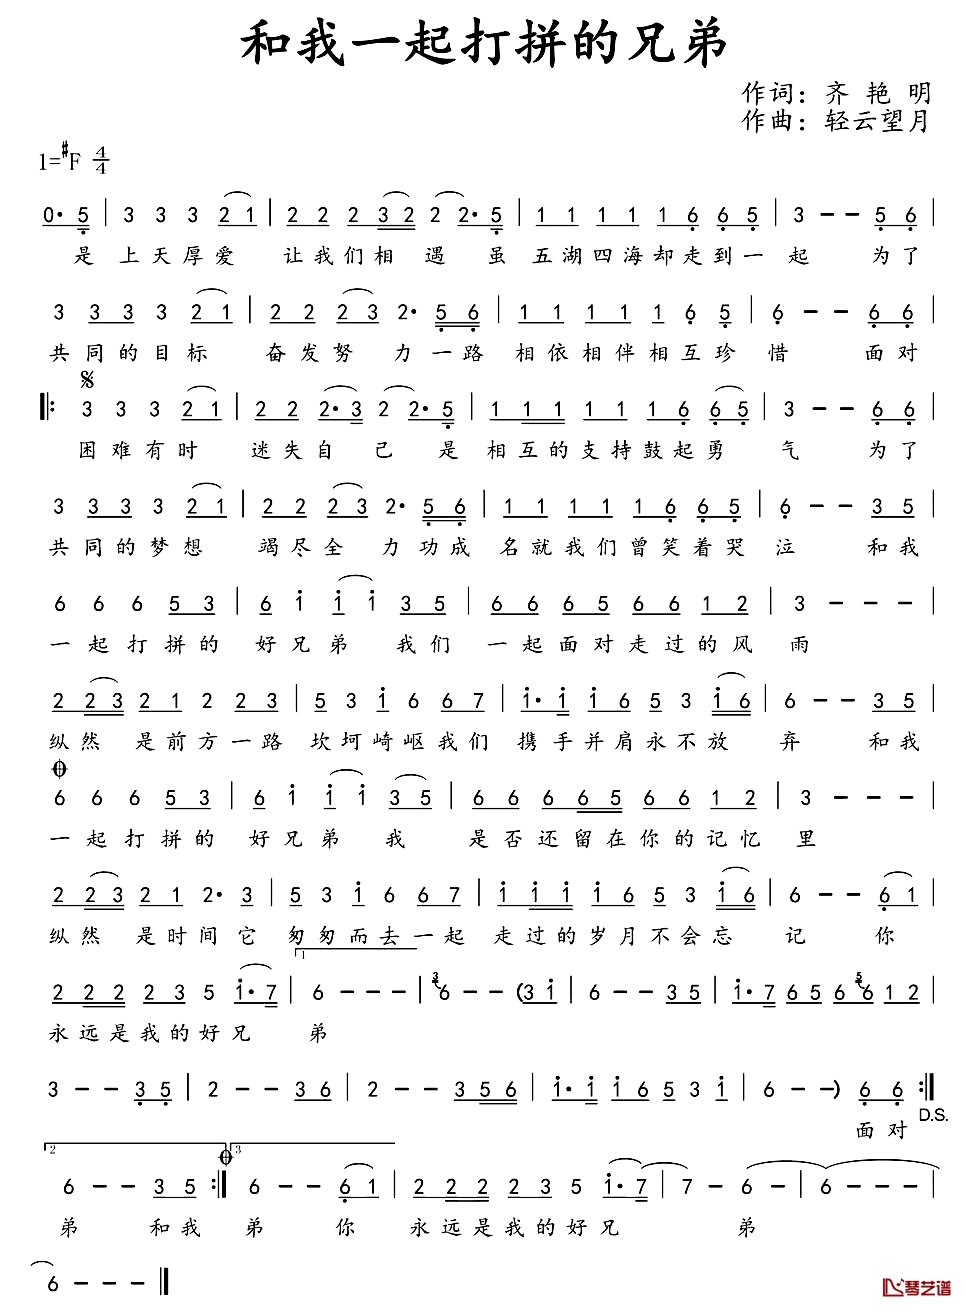 和我一起打拼的兄弟
作词：齐 艳 明
作曲：轻云望月
1=#F 4/4
0· 5 | 3 3 3 2 1 | 2 2 2 3 2 2 2· 5 | 1 1 1 1 1 6 6 5 | 3 - - 5 6 |
是 上天厚爱 让我们相 遇 虽 五湖四海却走到一 起 为了
3 3 3 3 2 1 | 2 2 2 3 2· 5 6 | 1 1 1 1 1 6 5 | 6 - - 6 6 |
共同的目标 奋发努 力一路 相依相伴相互珍 惜 面对
3 3 3 2 1 | 2 2 2· 3 2 2· 5 | 1 1 1 1 1 1 6 6 5 | 3 - - 6 6 |
困难有时 迷失自 己 是 相互的支持鼓起勇 气 为了
3 3 3 3 2 1 | 2 2 2 3 2· 5 6 | 1 1 1 1 1 6 6 5 | 6 - - 3 5 |
共同的梦想 竭尽全 力功成 名就我们曾笑着哭 泣 和我
6 6 6 5 3 | 6 1 1 1 3 5 | 6 6 6 5 6 6 1 2 | 3 - - - |
一起打拼的 好兄弟 我们 一起面对走过的风 雨
2 2 3 2 1 2 2 3 | 5 3 1 6 6 7 | 1· 1 1 6 5 3 1 6 | 6 - - 3 5 |
纵然 是前方一路 坎坷崎岖我们 携手并肩永不放 弃 和我
6 6 6 5 3 | 6 1 1 1 3 5 | 6 6 6 6 5 6 6 1 2 | 3 - - - |
一起打拼的 好兄弟 我 是否还留在你的记忆 里
2 2 3 2 1 2· 3 | 5 3 1 6 6 7 | 1 1 1 1 6 5 3 1 6 | 6 - - 6 1 |
纵然 是时间它 匆匆而去一起 走过的岁月不会忘 记 你
1
2 2 2 2 3 5 1· 7 | 6 - - | 3 6 - - (3 1 | 6 - - 3 5 | 1· 7 6 5 6 5 6 1 2 |
永远是我的好兄 弟
3 - - 3 5 | 2 - - 3 6 | 2 - - 3 5 6 | 1· 1 1 6 5 3 1 | 6 - -) 6 6 :|
D.S.
面对
2 3
6 - - 3 5 :| 6 - - 6 1 | 2 2 2 2 3 5 1· 7 | 7 - 6 - | 6 - - - |
弟 和我 弟 你 永远是我的好兄 弟
6 - - - ‖
琴艺谱